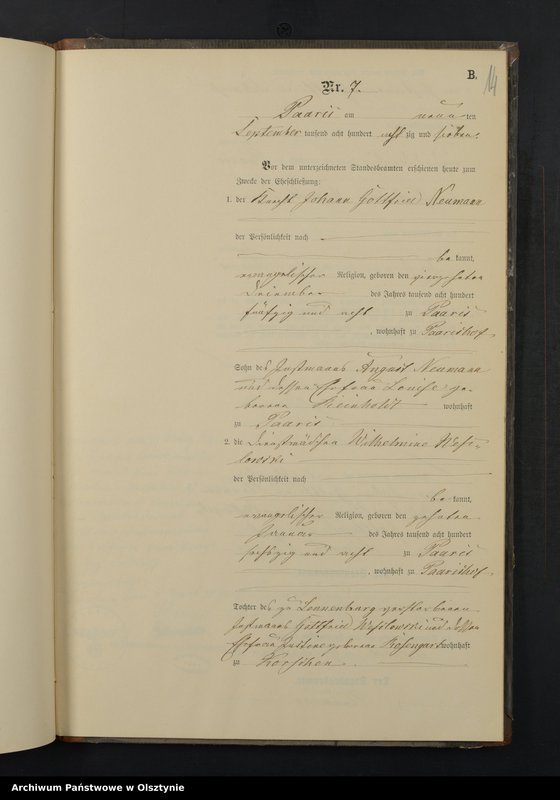 B.
14
Nr. 7.
Paaris am neunten
September tausend acht hundert acht zig und sieben.
Vor dem unterzeichneten Standesbeamten erschienen heute zum
Zwecke der Eheschließung:
1. der Knecht Johann Gottfried Neumann
der Persönlichkeit nach
be kannt,
evangelischer Religion, geboren den vierzehnten
Dezember des Jahres tausend acht hundert
fünfzig und acht zu Paaris
, wohnhaft zu Paarishof
Sohn des Instmanns August Neumann
und dessen Ehefrau Louise ge-
borene Reinholdt wohnhaft
zu Paaris
2. die Dienstmädchen Wilhelmine Wess-
lowski
der Persönlichkeit nach
be kannt,
evangelischer Religion, geboren den zehnten
Januar des Jahres tausend acht hundert
sechszig und acht zu Paaris
, wohnhaft zu Paarishof
Tochter des zu Lonnenburg verstorbenen
Instmanns Gottfried Wesslowski und dessen
Ehefrau Justine geborene Rosengart wohnhaft
zu Korschen.
Archiwum Państwowe w Olsztynie